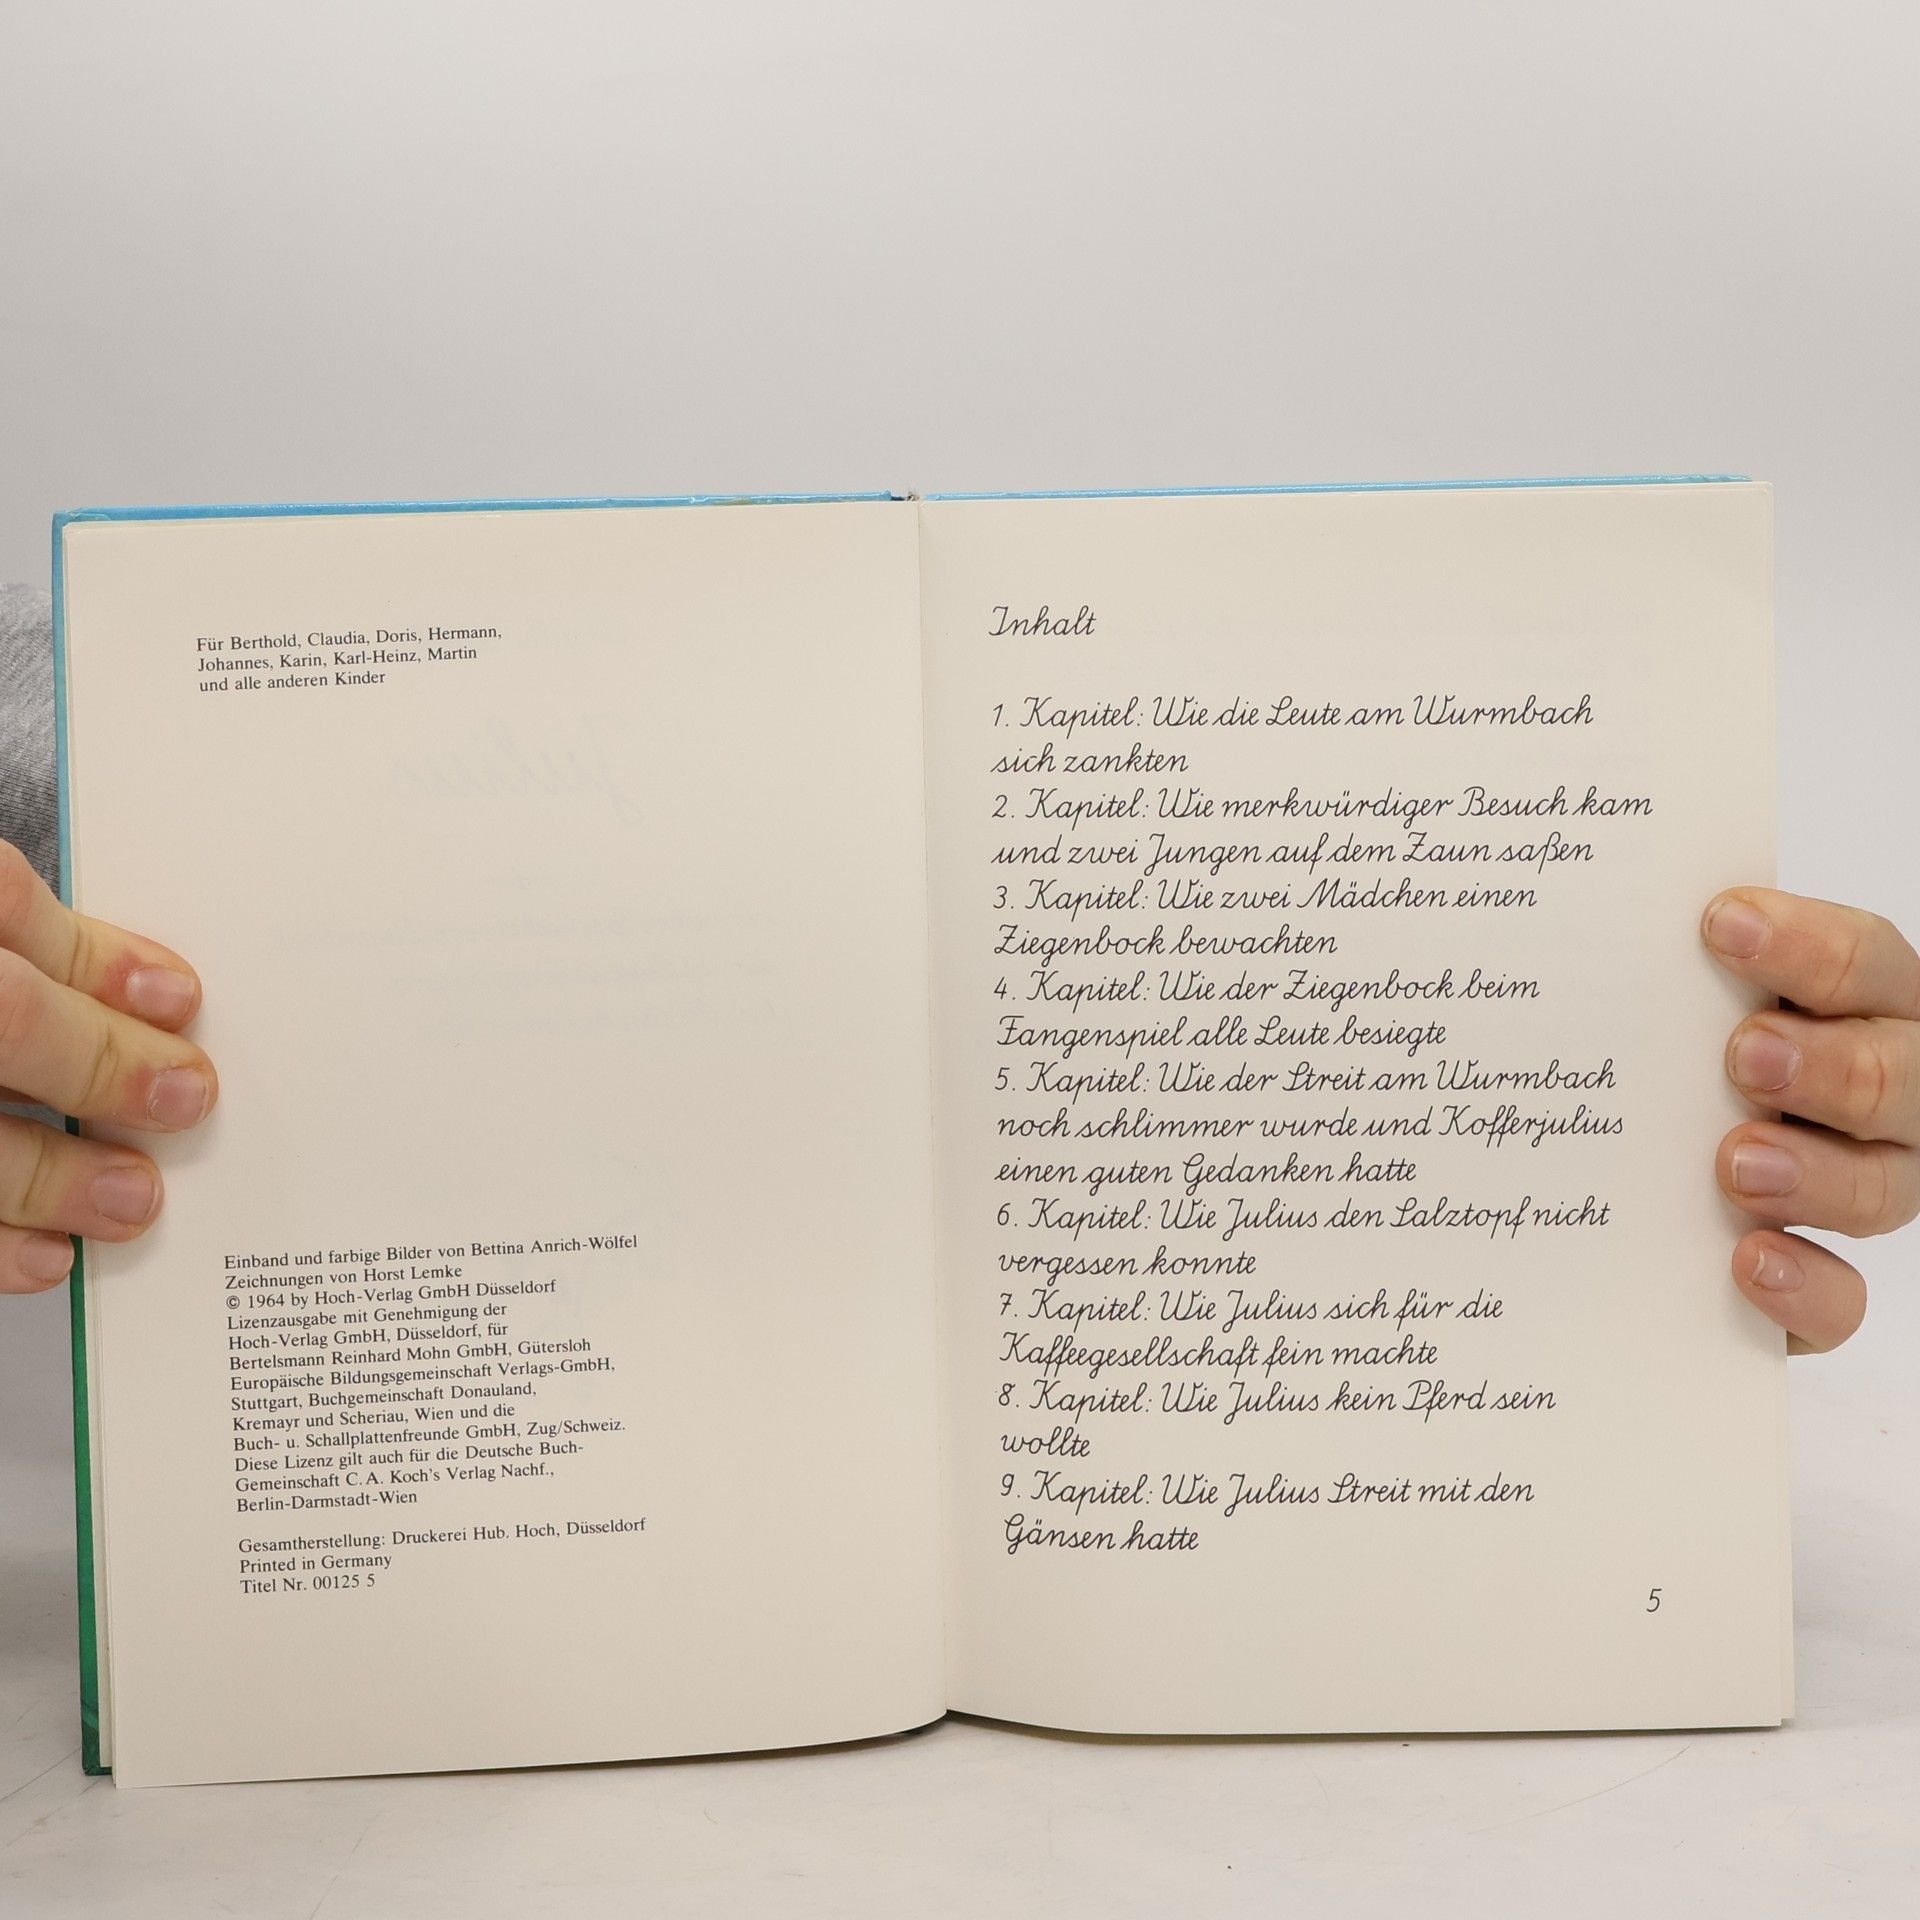 Für Berthold, Claudia, Doris, Hermann,
Johannes, Karin, Karl-Heinz, Martin
und alle anderen Kinder
Einband und farbige Bilder von Bettina Anrich-Wölfel
Zeichnungen von Horst Lemke
© 1964 by Hoch-Verlag GmbH Düsseldorf
Lizenzausgabe mit Genehmigung der
Hoch-Verlag GmbH, Düsseldorf, für
Bertelsmann Reinhard Mohn GmbH, Gütersloh
Europäische Bildungsgemeinschaft Verlags-GmbH,
Stuttgart, Buchgemeinschaft Donauland,
Kremayr und Scheriau, Wien und die
Buch- u. Schallplattenfreunde GmbH, Zug/Schweiz.
Diese Lizenz gilt auch für die Deutsche Buch-
Gemeinschaft C. A. Koch's Verlag Nachf.,
Berlin-Darmstadt-Wien
Gesamtherstellung: Druckerei Hub. Hoch, Düsseldorf
Printed in Germany
Titel Nr. 00125 5
Inhalt
1. Kapitel: Wie die Leute am Wurmbach
sich zankten
2. Kapitel: Wie merkwürdiger Besuch kam
und zwei Jungen auf dem Zaun saßen
3. Kapitel: Wie zwei Mädchen einen
Ziegenbock bewachten
4. Kapitel: Wie der Ziegenbock beim
Fangenspiel alle Leute besiegte
5. Kapitel: Wie der Streit am Wurmbach
noch schlimmer wurde und Kofferjulius
einen guten Gedanken hatte
6. Kapitel: Wie Julius den Salztopf nicht
vergessen konnte
7. Kapitel: Wie Julius sich für die
Kaffeegesellschaft fein machte
8. Kapitel: Wie Julius kein Pferd sein
wollte
9. Kapitel: Wie Julius Streit mit den
Gänsen hatte
5